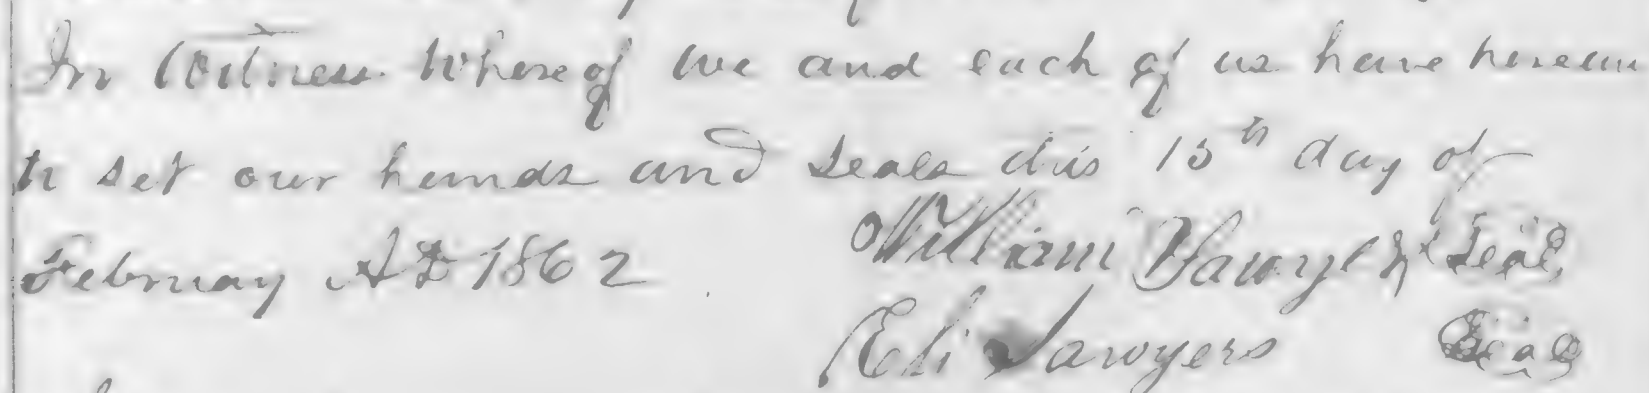 In Witness Whereof we and each of us have hereun
to set our hands and seals this 15th day of
February AD 1862 William Sawyers Seal
Eli Sawyers Seal